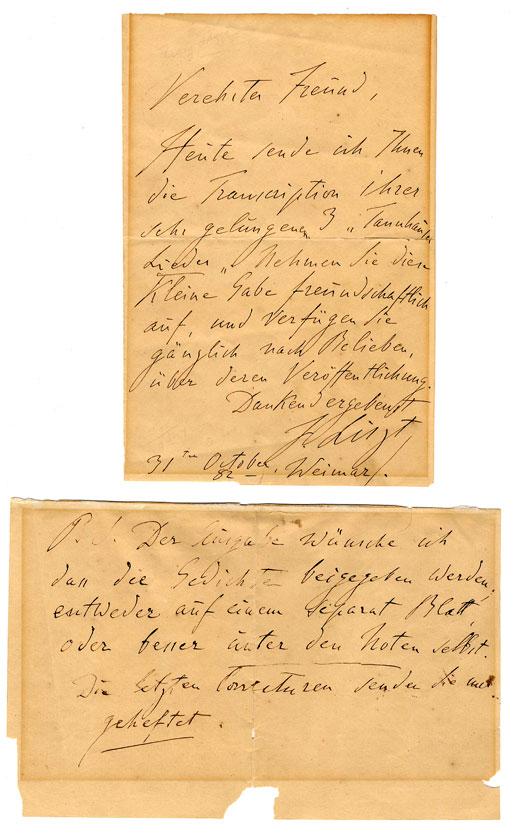 Verehrter Freund,
Heute sende ich Ihnen
die Transcription ihrer
sehr gelungenen 3 „Tannhäuser
Lieder„ Nehmen Sie diese
Kleine Gabe freundschaftlich
auf, und verfügen Sie
gänzlich nach Belieben,
über deren Veröffentlichung.
Dankend ergebenst
F. Liszt
31ten October, Weimar.
82
P. S. Der Ausgabe wünsche ich
dass die Gedichte beigegeben werden,
entweder auf einem separat Blatt,
oder besser unter den Noten selbst.
Die letzten Correcturen senden Sie
geheftet.